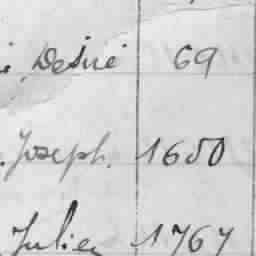 Désiré 69
Joseph. 1650
Julien 1767